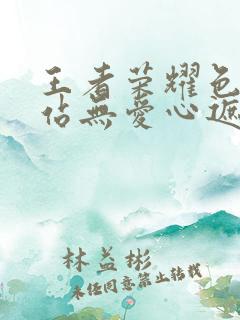 王者荣耀色
佔無爱心遮
林益彬
未经同意禁止转载